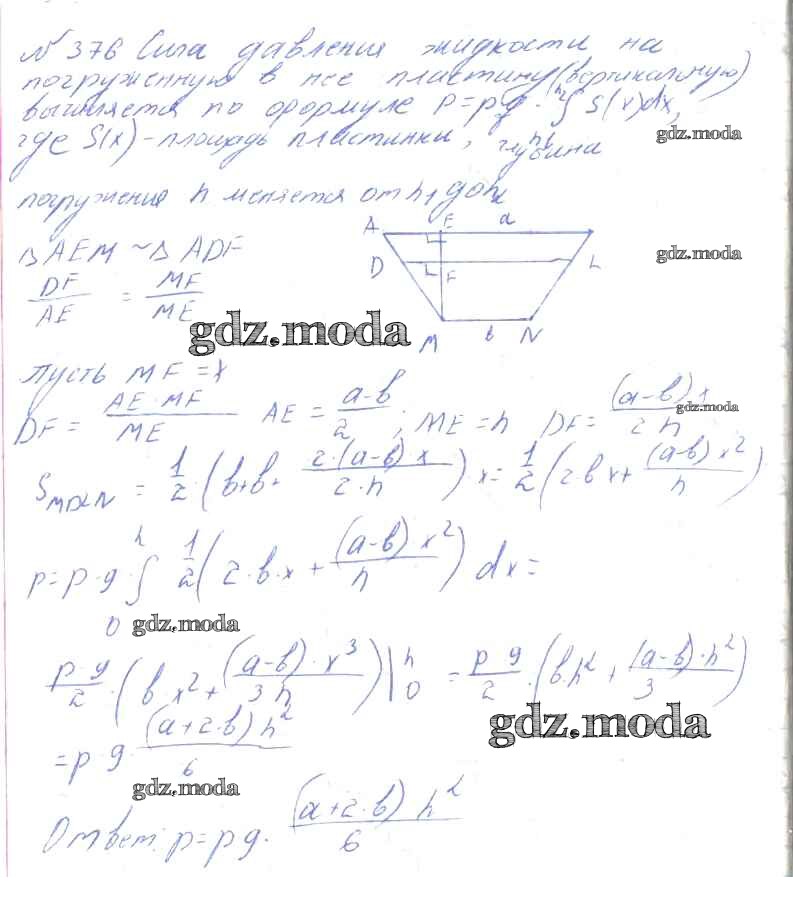 № 376 Сила давления жидкости на
погруженную в нее пластину (вертикальную)
вычиляется по формуле P = ρg · ∫ S(x)dx,
h₂
h₁
где S(x) - площадь пластинки, глубина
gdz.moda
погружения h меняется от h₁ до h₂
A E a
D F L
M в N
gdz.moda
△ AEM ~ △ ADF
DF/AE = MF/ME
gdz.moda
пусть MF = x
DF = AE · MF/ME AE = a-в/2 ; ME = h DF = (a-в)x/2h
gdz.moda
S MDLN = 1/2 · (в+в+ 2·(a-в)x/2·h) x = 1/2 (2вx + (a-в)x²/h)
p = ρ · g · ∫ 1/2 (2·в·x + (a-в)x²/h) dx =
h
0
gdz.moda
ρ·g/2 · (в·x² + (a-в)·x³/3h) | h 0 = ρ g/2 · (в·h² + (a-в)·h²/3)
gdz.moda
= ρ · g · (a+2·в)h²/6
gdz.moda
Ответ: p = ρg · (a+2·в) h²/6